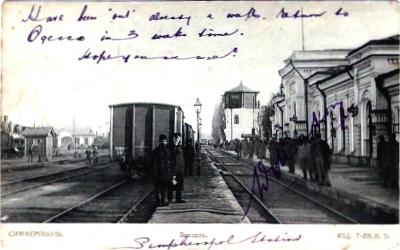 Have been "out" already a week. Return to
Odessa in 3 weeks time.
Hope you are well?
СИМФЕРОПОЛЬ.
Вокзалъ.
Simpheropol Station